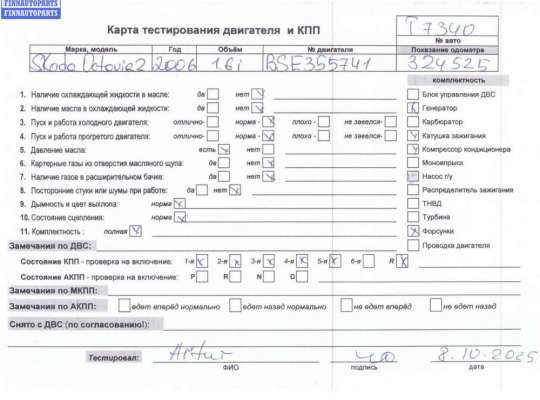 FINNAUTOPARTS
FINNAUTOPARTS
Карта тестирования двигателя и КПП
T7340
№ авто
Марка, модель Год Объём № двигателя Показание одометра
Skoda Octavia 2 2006 1.6i BSE355741 324525
комплектность
1. Наличие охлаждающей жидкости в масле: да нет
2. Наличие масла в охлаждающей жидкости: да нет
3. Пуск и работа холодного двигателя: отлично- норма - плохо - не завелся-
4. Пуск и работа прогретого двигателя: отлично- норма - плохо - не завелся-
5. Давление масла: есть нет
6. Картерные газы из отверстия масляного щупа: да нет
7. Наличие газов в расширительном бачке: да нет
8. Посторонние стуки или шумы при работе: да нет
9. Дымность и цвет выхлопа: норма
10. Состояние сцепления: норма
11. Комплектность : полная
Блок управления ДВС
Генератор
Карбюратор
Катушка зажигания
Компрессор кондиционера
Моновпрыск
Насос г/у
Распределитель зажигания
ТНВД
Турбина
Форсунки
Проводка двигателя
Замечания по ДВС:
Состояние КПП - проверка на включение: 1-я x 2-я x 3-я x 4-я x 5-я x 6-я R x
Состояние АКПП - проверка на включение: P R N D
Замечания по МКПП:
Замечания по АКПП: едет вперёд нормально едет назад нормально не едет вперёд не едет назад
Снято с ДВС (по согласованию!):
Тестировал: Artur 8.10.2025
ФИО подпись дата